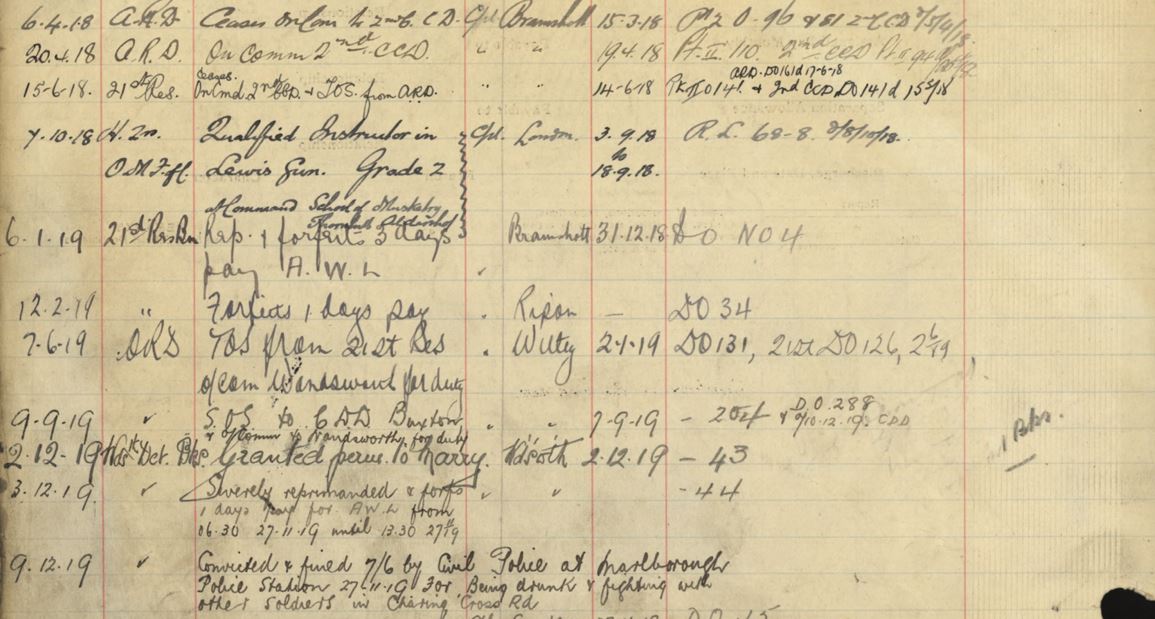 6.4.18 A.R.D. Ceases On Com to 2nd C.C.D. Cpl Bramshott 15-3-18 Pt 2 O. 96 & 81 2nd CCD
20.4.18 A.R.D. On Comm 2nd CCD. " " 19.4.18 Pt. II. 110. 2nd CCD Pt II
ceases ARD. DO161 d 17-6-18
15-6-18. 21st Res. On Cmd 2nd CCD. & TOS from ARD. 14-6-18 Pt II O 141. & 2nd CCD DO 141 d 15/6/18
7.10.18 Qualified Instructor in Cpl. London. 3.9.18 R.L. 68-8. 8/10/18.
to
O.M.F. Lewis Gun. Grade 2 18.9.18.
at Command School of Musketry
Aldershot
6.1.19 21st Res Bn Rep. & forfeits 3 days Bramshott 31.12.18 DO NO 4
pay A.W.L "
12.2.19 " Forfeits 1 days pay " Ripon — DO 34
7.6.19 TOS from 21st Res " Witley 2-1-19 DO 131, 21st DO 126, 2/6/19
o/com Wandsworth for duty
9-9-19 " S.O.S to CDD Buxton " " 7-9-19 - 204 & D.O. 288 d/10.12.19. CDD
& o/Comm to Wandsworth for duty
1 Bks.
2-12-19 Det. Granted perm. to Marry. 2.12.19 - 43
3.12.19. " Severely reprimanded & forfs " " - 44
1 days pay for A W L from
06.30 27-11-19 until 13.30
9.12.19 " Convicted & fined 7/6 by Civil Police at Marlborough
Police Station 27-11-19 For Being drunk & fighting with
other Soldiers in Charing Cross Rd